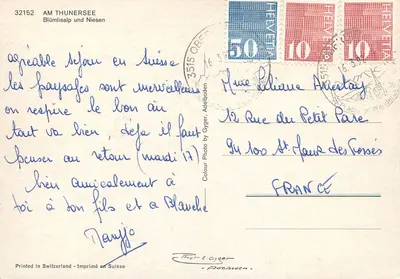 32152 AM THUNERSEE
Blümlisalp und Niesen
agréable séjour en Suisse
les paysages sont merveilleux
on respire le bon air
tout va bien, déja il faut
penser au retour (mardi 17)
bien amicalement à
toi à ton fils et a Blanche
Printed in Switzerland - Imprimé en Suisse
Colour Photo by Gyger, Adelboden
HELVETIA 50
HELVETIA 10
HELVETIA 10
3515 OBER
16.3.
Mme Liliane
12 Rue du Petit Parc
94100 St Maur des Fosses
FRANCE
Gyger
Adelboden